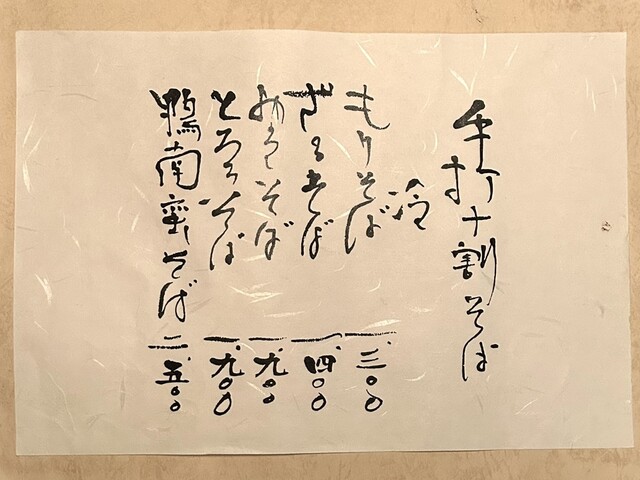 手打十割そば
冷
もりそば 一、三〇〇
ざるそば 一、四〇〇
おろしそば 一、九〇〇
とろろそば 一、九〇〇
鴨南蛮そば 二、五〇〇